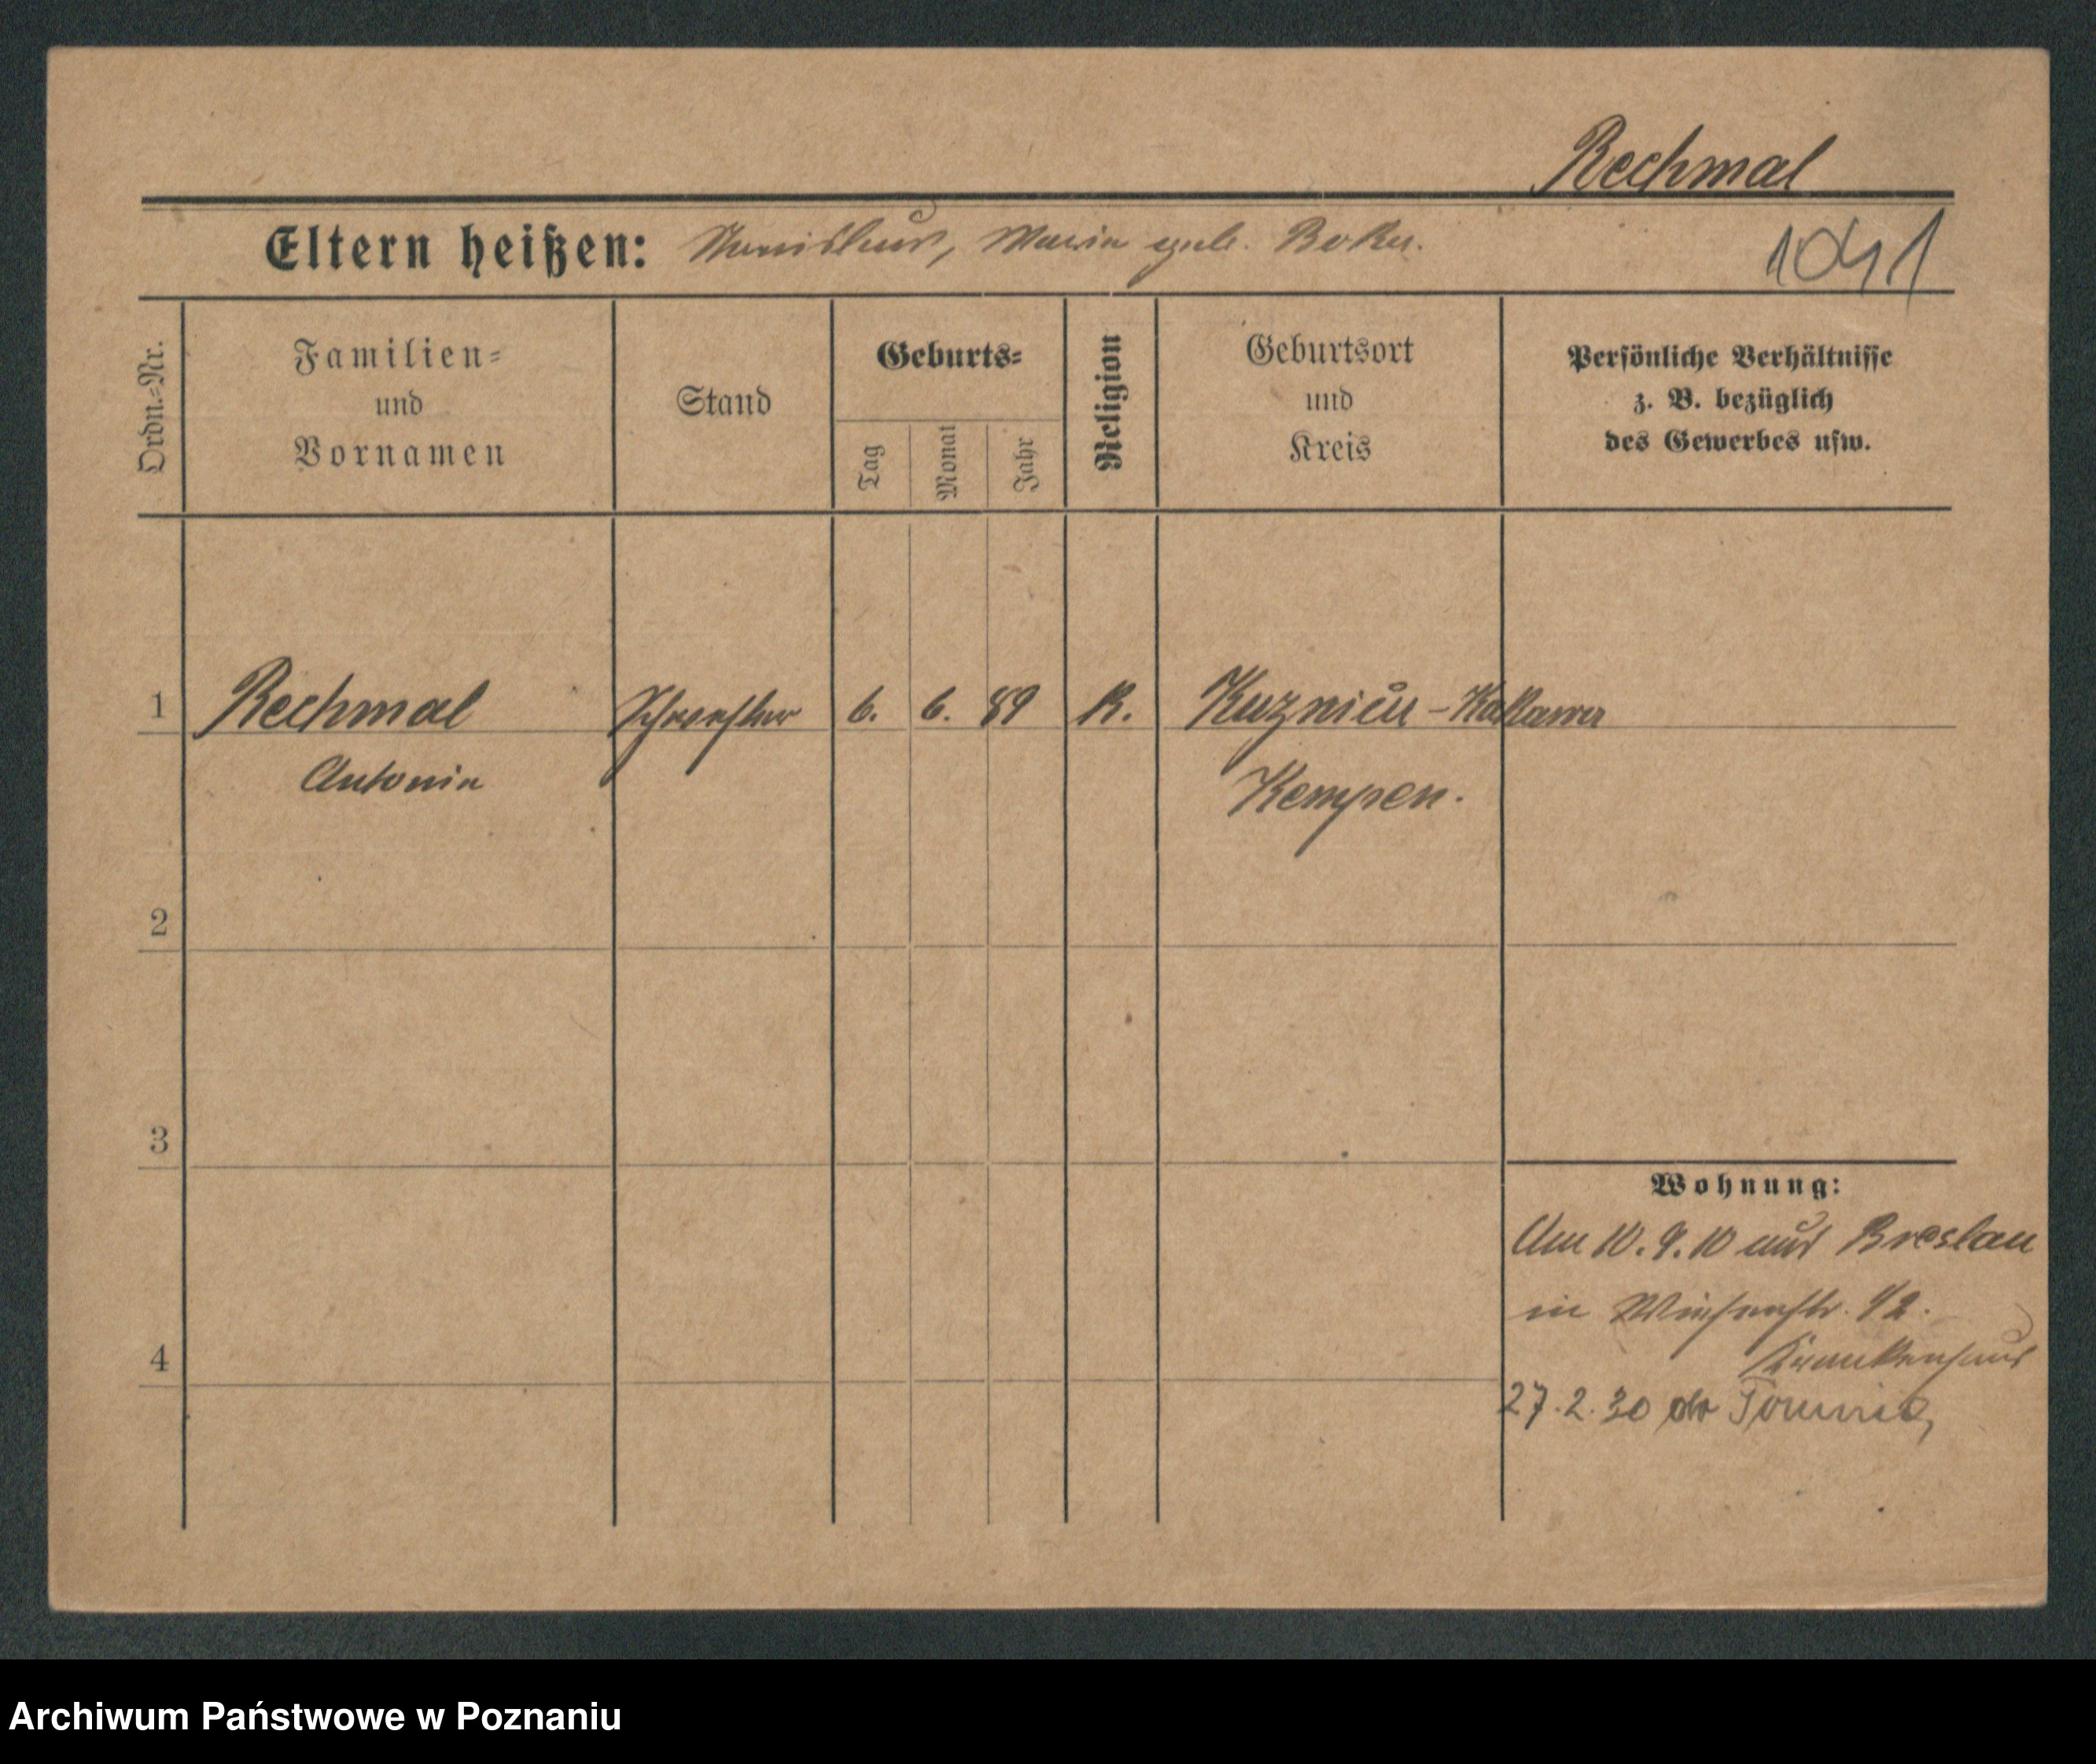 Rechmal
Eltern heißen: Stanislaus, Maria geb. Boka.
1041
Ordn.-Nr.
Familien-
und
Vornamen
Stand
Geburts-
Tag
Monat
Jahr
Religion
Geburtsort
und
Kreis
Persönliche Verhältnisse
z. B. bezüglich
des Gewerbes usw.
1 Rechmal Schwester 6. 6. 89 K. Kuznica-
Antonia Kempen.
2
3
4
Wohnung:
Am 10.9.10 aus Breslau
in
Krankenhaus
27.2.30 do
Archiwum Państwowe w Poznaniu